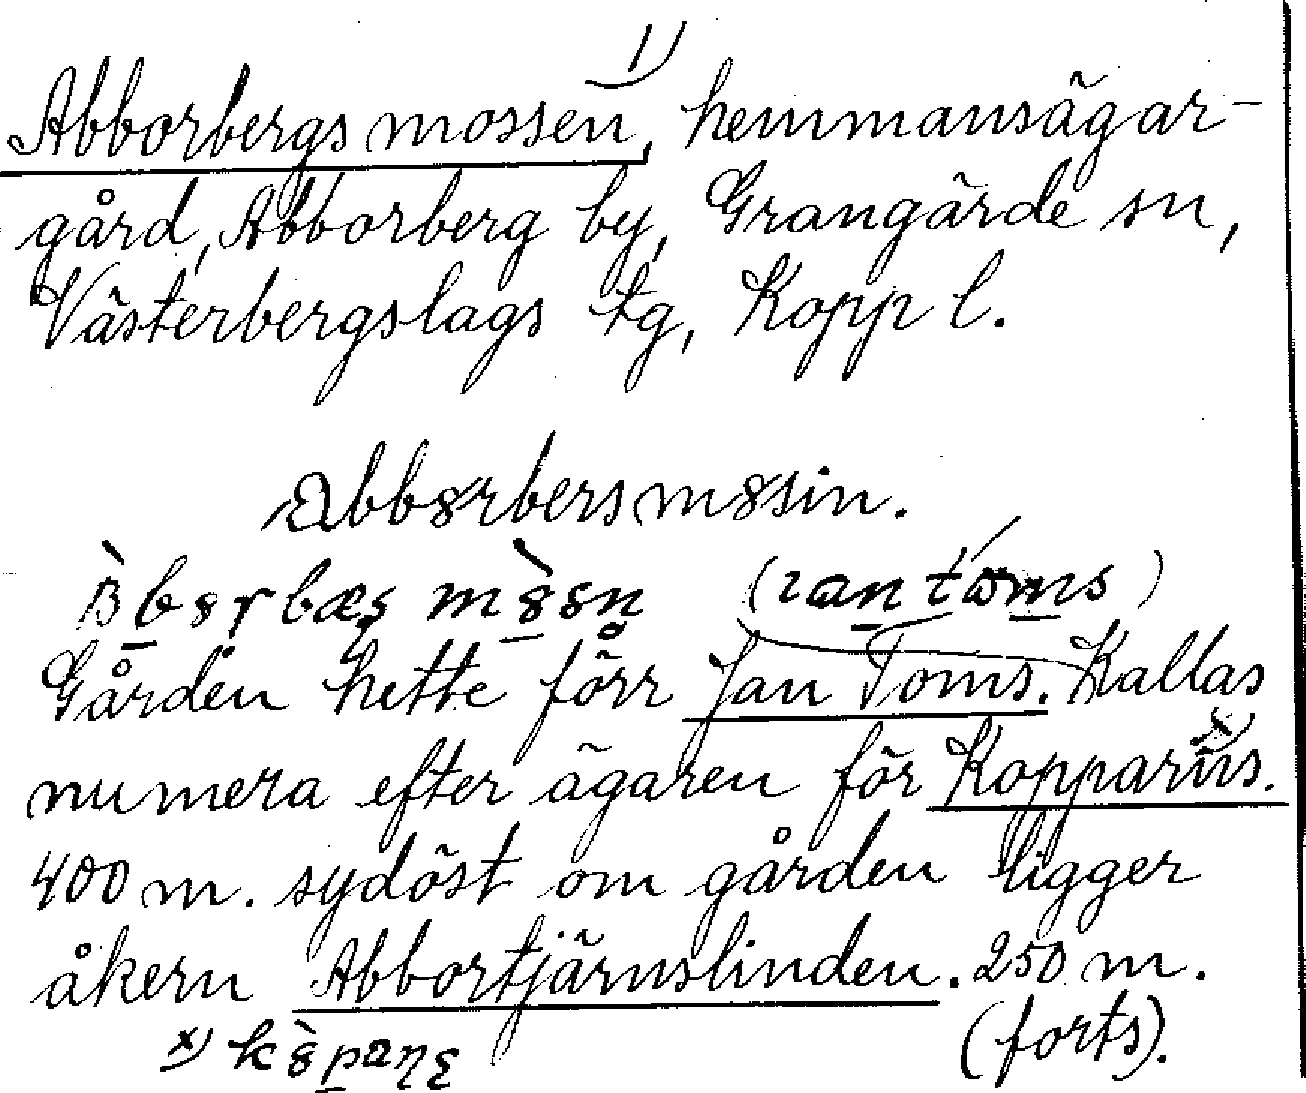 1)
Abborbergsmossen, hemmansägar-
gård, Abborberg by, Grangärde sn,
Västerbergslags tg, Kopp l.
Abb8rbersm8sin.
Gården hette förr Jan Toms. Kallas
numera efter ägaren för Kopparüs. x)
400 m. sydöst om gården ligger
åkern Abbortjärnslinden. 250 m.
(forts).